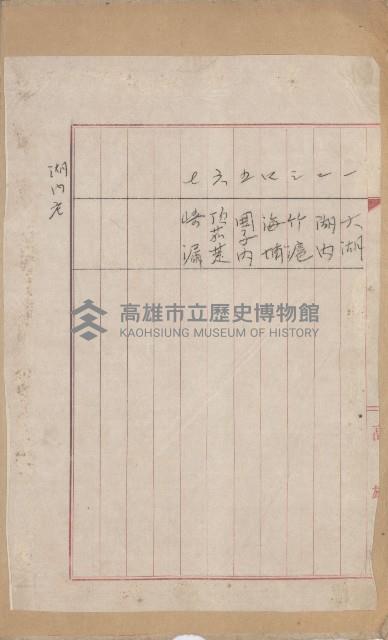 湖內庄
一 大湖
二 湖內
三 竹滬
四 海埔
五 圍子內
六 頂茄萣
七 崎漏
高雄市立歷史博物館
KAOHSIUNG MUSEUM OF HISTORY
高
雄